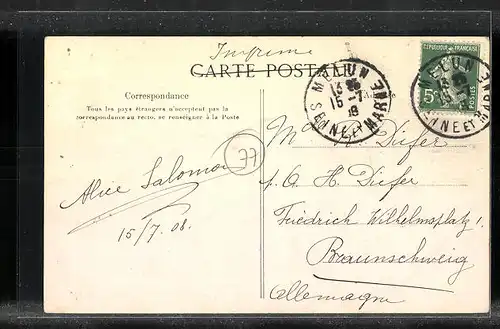 Imprimé
CARTE POSTALE
Correspondance
Tous les pays étrangers n'acceptent pas la
correspondance au recto, se renseigner à la Poste
MELUN
13
15-7
SEINE ET MARNE
RÉPUBLIQUE FRANÇAISE
5c
POSTES
MELUN
SEINE ET MARNE
77
Alice Salomon
15/7. 08.
Diefer
p. a. H. Diefer
Friedrich Wilhelmsplatz 1.
Braunschweig
Allemagne